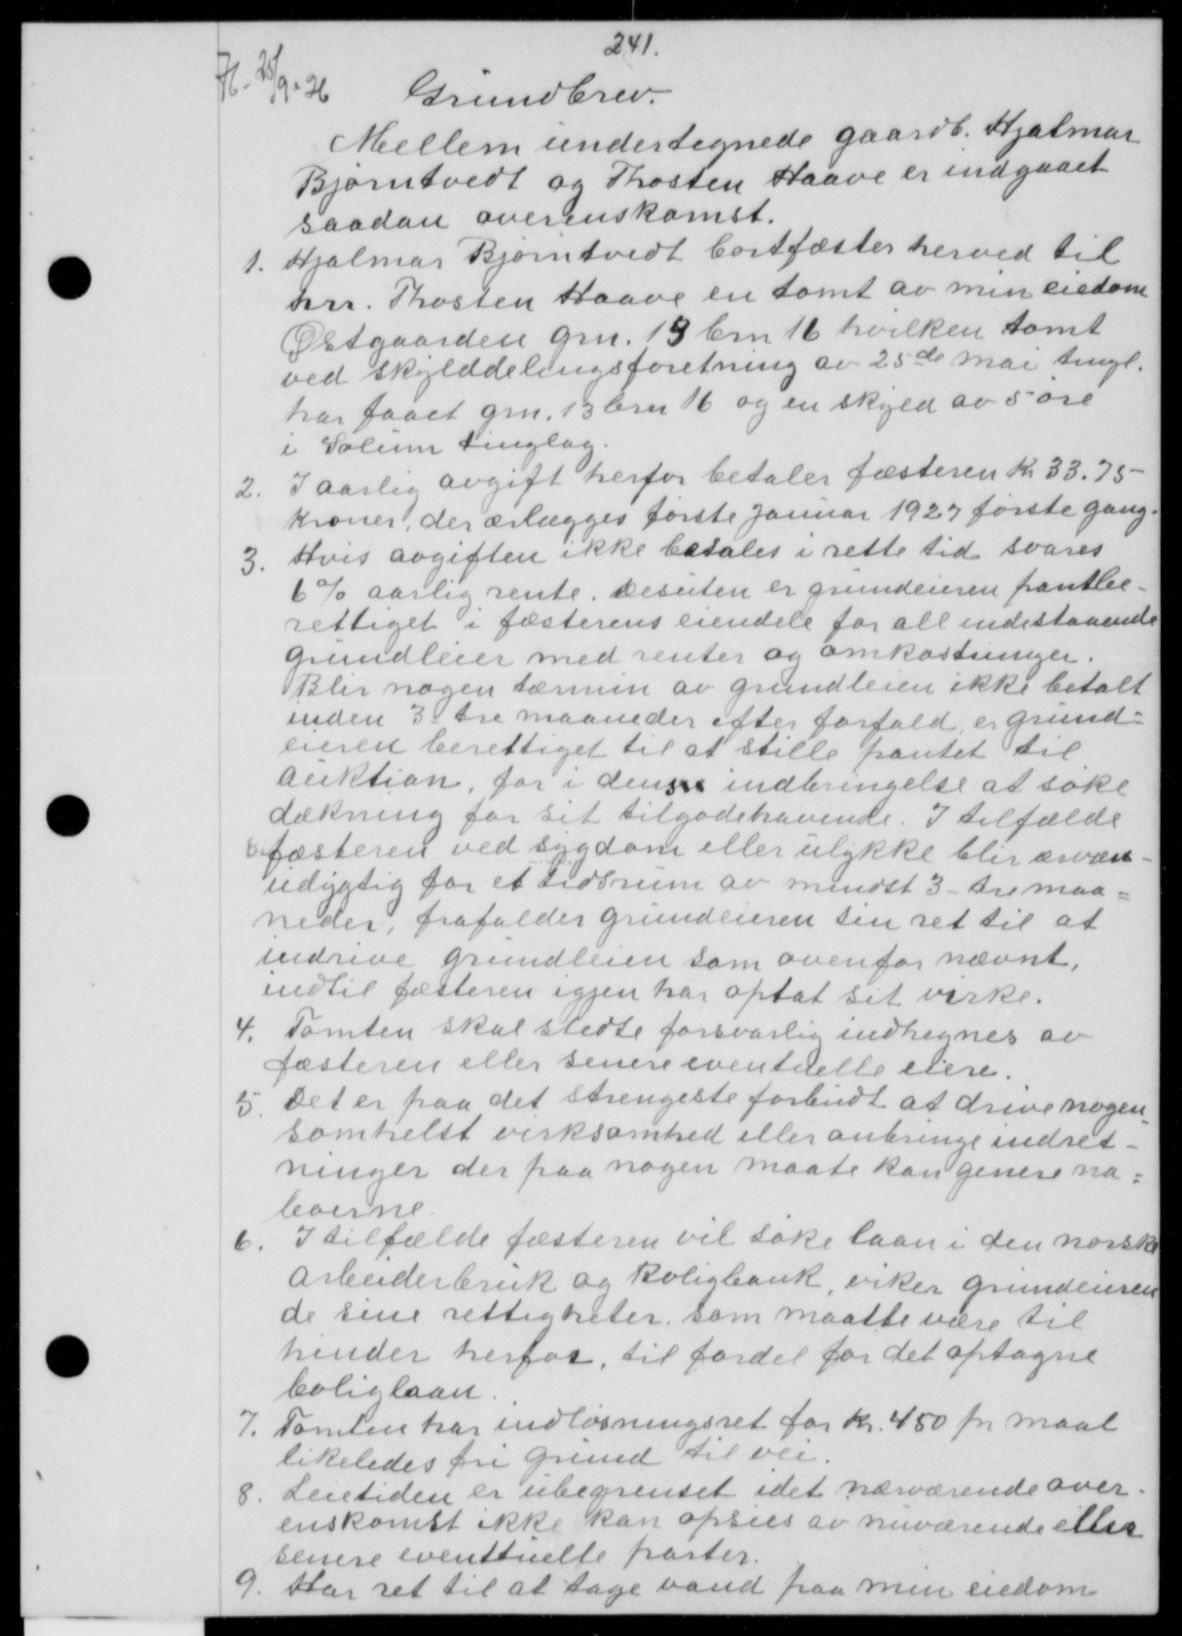 241.
H. 25/9-26 Grundbrev.
Mellem undertegnede gaardb. Hjalmar
Bjørntvedt og Thosten Haave er indgaaet
saadan overenskomst.
1. Hjalmar Bjørntvedt bortfæster herved til
hrr. Thosten Haave en tomt av min eiedom
Østgaarden grn. 13 brn 16 hvilken tomt
ved skylddelingsforetning av 25de mai tingl.
har faaet grn. 13 brn 16 og en skyld av 5 øre
i Solum tinglag.
2. I aarlig avgift herfor betaler fæsteren Kr 33.75-
kroner, der ærlægges første Januar 1927 første gang.
3. Hvis avgiften ikke betales i rette tid svares
6% aarlig rente. Desuten er grundeieren pantbe-
rettiget i fæsterens eiendele for all indestaaende
grundleier med renter og omkostninger.
Blir nogen tærmin av grundleien ikke betalt
inden 3- tre maaneder efter forfald, er grund=
eieren berettiget til at stille pantet til
auktion, for i denss indbringelse at søke
dækning for sit tilgodehavende. I tilfælde
fæsteren ved sygdom eller ulykke blir ærværs-
udygtig for et tidsrum av mindst 3- tre maa=
neder, frafalder grundeieren sin ret til at
indrive grundleien som ovenfor nævnt,
indtil fæsteren igjen har optat sit virke.
4. Tomten skal stedse forsvarlig indhegnes av
fæsteren eller senere eventuelle eiere.
5. Det er paa det strengeste forbudt at drive nogen-
somhelst virksomhed eller anbringe indret-
ninger der paa nogen maate kan genere na=
boerne.
6. I tilfælde fæsteren vil søke laan i den norske
Arbeiderbruk og Boligbank, viker grundeieren
de sine rettigheter som maatte være til
hinder herfor, til fordel for det optagne
boliglaan.
7. Tomten har indløsningsret for kr. 450 pr maal
likeledes fri grund til vei.
8. Leietiden er ubegrenset idet nærværende over-
enskomst ikke kan opsies av nuværende eller
senere eventtuelle parter.
9. Har ret til at tage vand paa min eiedom